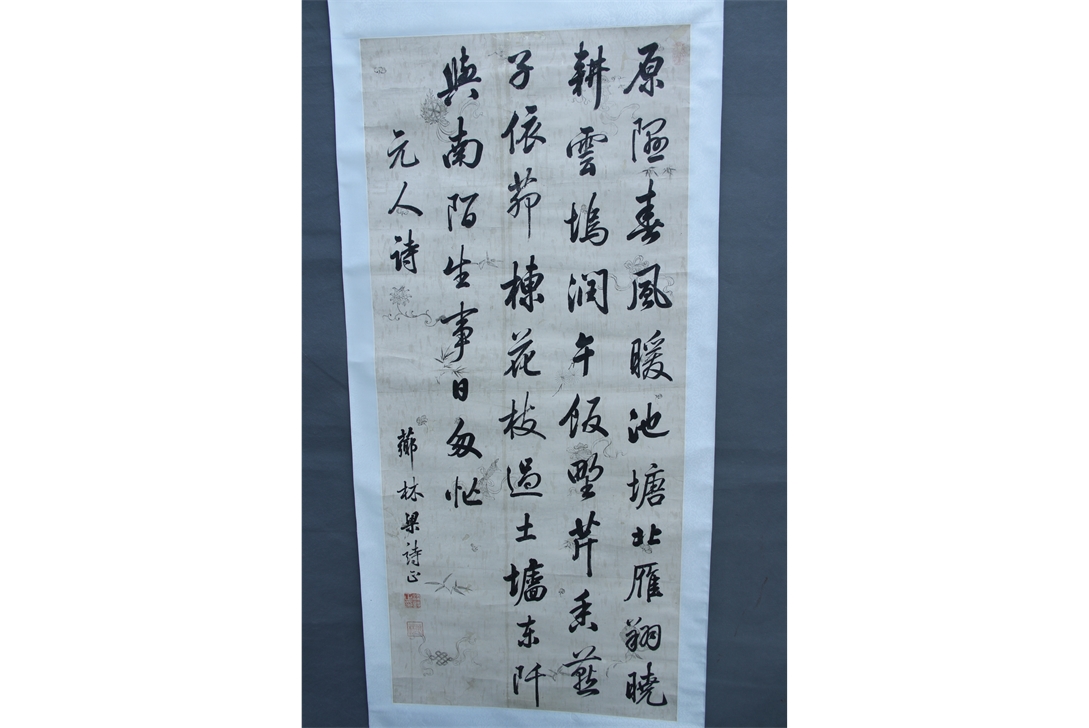 原隰春風暖池塘北雁翔曉
耕雲塢潤午飯墅芹香燕
子依茆棟花枝過土墻東阡
與南陌生事日匆忙
元人詩
薌林梁詩正